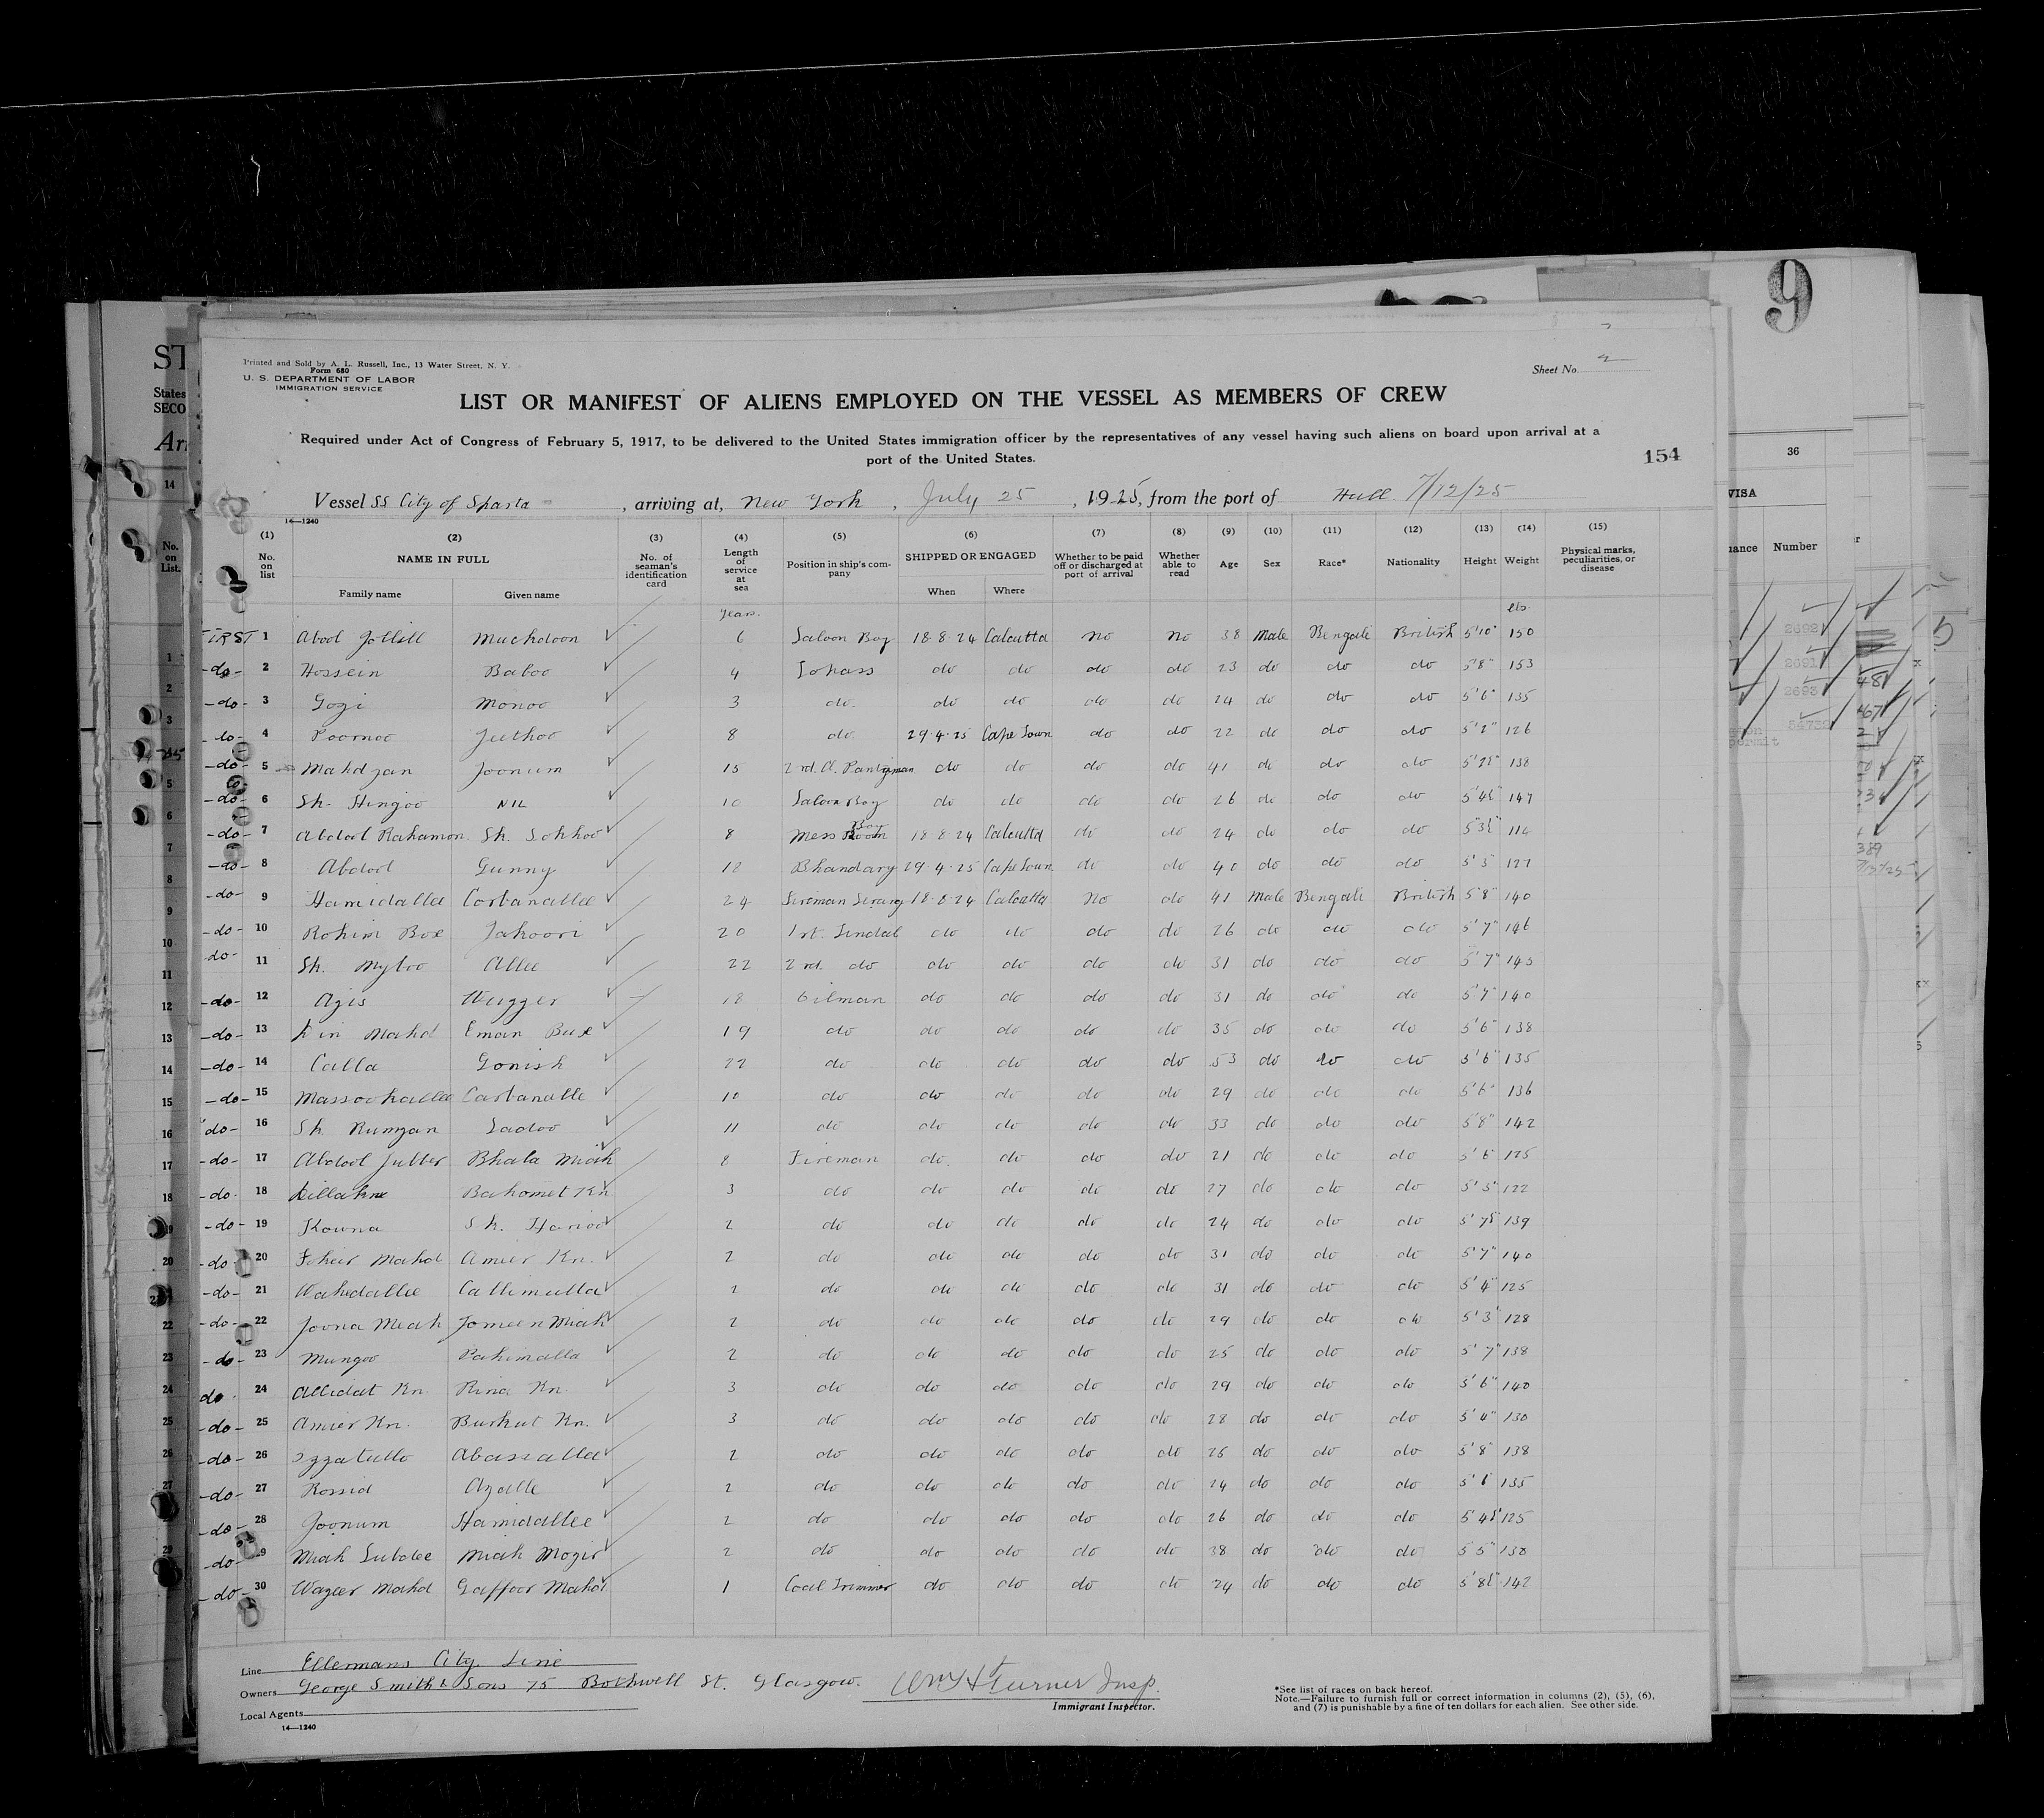 9
Printed and Sold by A. L. Russell, Inc., 13 Water Street, N. Y.
Form 680
U. S. DEPARTMENT OF LABOR
IMMIGRATION SERVICE
Sheet No.
LIST OR MANIFEST OF ALIENS EMPLOYED ON THE VESSEL AS MEMBERS OF CREW
Required under Act of Congress of February 5, 1917, to be delivered to the United States immigration officer by the representatives of any vessel having such aliens on board upon arrival at a
port of the United States.
154
Vessel SS City of Sparta, arriving at, New York, July 25, 1925, from the port of Hull 7/12/25
14—1240
(1) (2) (3) (4) (5) (6) (7) (8) (9) (10) (11) (12) (13) (14) (15)
No. on list NAME IN FULL Family name Given name No. of seaman's identification card Length of service at sea Position in ship's company SHIPPED OR ENGAGED When Where Whether to be paid off or discharged at port of arrival Whether able to read Age Sex Race* Nationality Height Weight Physical marks, peculiarities, or disease
Years. lbs.
1 Abool Muckdoon 6 Saloon Boy 18·8·24 Calcutta No No 38 Male Bengali British 5'10" 150
-do- 2 Hossein Baboo 4 Topass do do do do 23 do do do 5'8" 153
-do- 3 Gogi Monoo 3 do do do do do 24 do do do 5'6" 135
do- 4 Poornoo Jeethoo 8 do 29·4·25 Cape Town do do 22 do do do 5'2" 126
-do- 5 Mahdjan Joonum 15 do do do do 41 do do do 138
-do- 6 Sk. Hingoo NIL 10 Saloon Boy do do do do 26 do do do 147
-do- 7 Abdool Rahamon Sk. Sokhoo 8 Mess 18·8·24 Calcutta do do 24 do do do 114
-do- 8 Abdool Gunny 18 Bhandary 29·4·25 Cape Town do do 40 do do do 5'5" 127
-do- 9 Hamidalla Corbanallee 24 Fireman Serang 18·8·24 Calcutta No do 41 Male Bengali British 5'8" 140
-do- 10 Rohim Box Jahoori 20 1st. Tindal do do do do 26 do do do 5'7" 146
do- 11 Sk. Myboo Allee 22 2nd. do do do do do 31 do do do 5'7" 145
-do- 12 Azis Wugger 18 Oilman do do do do 31 do do do 5'7" 140
-do- 13 Mahd Eman Bux 19 do do do do do 35 do do do 5'6" 138
-do- 14 Calla Gonish 22 do do do do do 53 do do do 5'6" 135
-do- 15 Carbanalle 10 do do do do do 29 do do do 5'6" 136
do- 16 Sk. Rumzan Sadoo 11 do do do do do 33 do do do 5'8" 142
-do- 17 Abdool Jubber Bhala Miah 8 Fireman do do do do 21 do do do 5'6" 125
-do- 18 Bahomet Kn 3 do do do do do 27 do do do 5'3" 122
-do- 19 Kouna Sk. 2 do do do do do 24 do do do 139
-do- 20 Mahd Amier Kn. 2 do do do do do 31 do do do 5'7" 140
-do- 21 Wahedallie Callimulla 2 do do do do do 31 do do do 5'4" 125
-do- 22 Joona Meah Jomeen Miah 2 do do do do do 29 do do do 5'3" 128
-do- 23 Mungoo 2 do do do do do 25 do do do 5'7" 138
do- 24 Allidat Kn. Rina Kn. 3 do do do do do 29 do do do 5'6" 140
-do- 25 Amier Kn. Burkut Kn. 3 do do do do do 28 do do do 5'4" 130
-do- 26 Abassallee 2 do do do do do 25 do do do 5'8" 138
-do- 27 Rossid Azalle 2 do do do do do 24 do do do 135
-do- 28 Joonum Hamidallee 2 do do do do do 26 do do do 125
-do- 9 Miah Subdee Miah Mogir 2 do do do do do 38 do do do 5'5" 138
-do- 30 Wazeer Mahd Gaffoor Mahd 1 Coal Trimmer do do do do 24 do do do 142
Line Ellermans City Line
Owners George Smith & Sons 75 Bothwell St. Glasgow.
Wm H Turner Insp.
Immigrant Inspector.
Local Agents
14—1240
*See list of races on back hereof.
Note.—Failure to furnish full or correct information in columns (2), (5), (6),
and (7) is punishable by a fine of ten dollars for each alien. See other side.
36
VISA
Number
2692
2691
2693
54732
permit
States
SECO
No. on List.